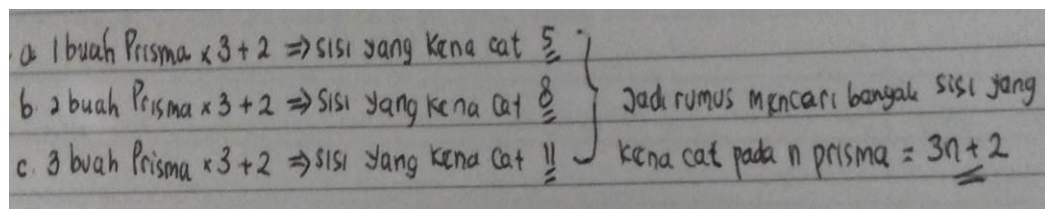 a 1 buah Prisma x 3 + 2 ⇒ sisi yang kena cat 5
b. 2 buah Prisma x 3 + 2 ⇒ sisi yang kena cat 8
c. 3 buah Prisma x 3 + 2 ⇒ sisi yang kena cat 11
Jadi rumus mencari banyak sisi yang
kena cat pada n prisma = 3n + 2